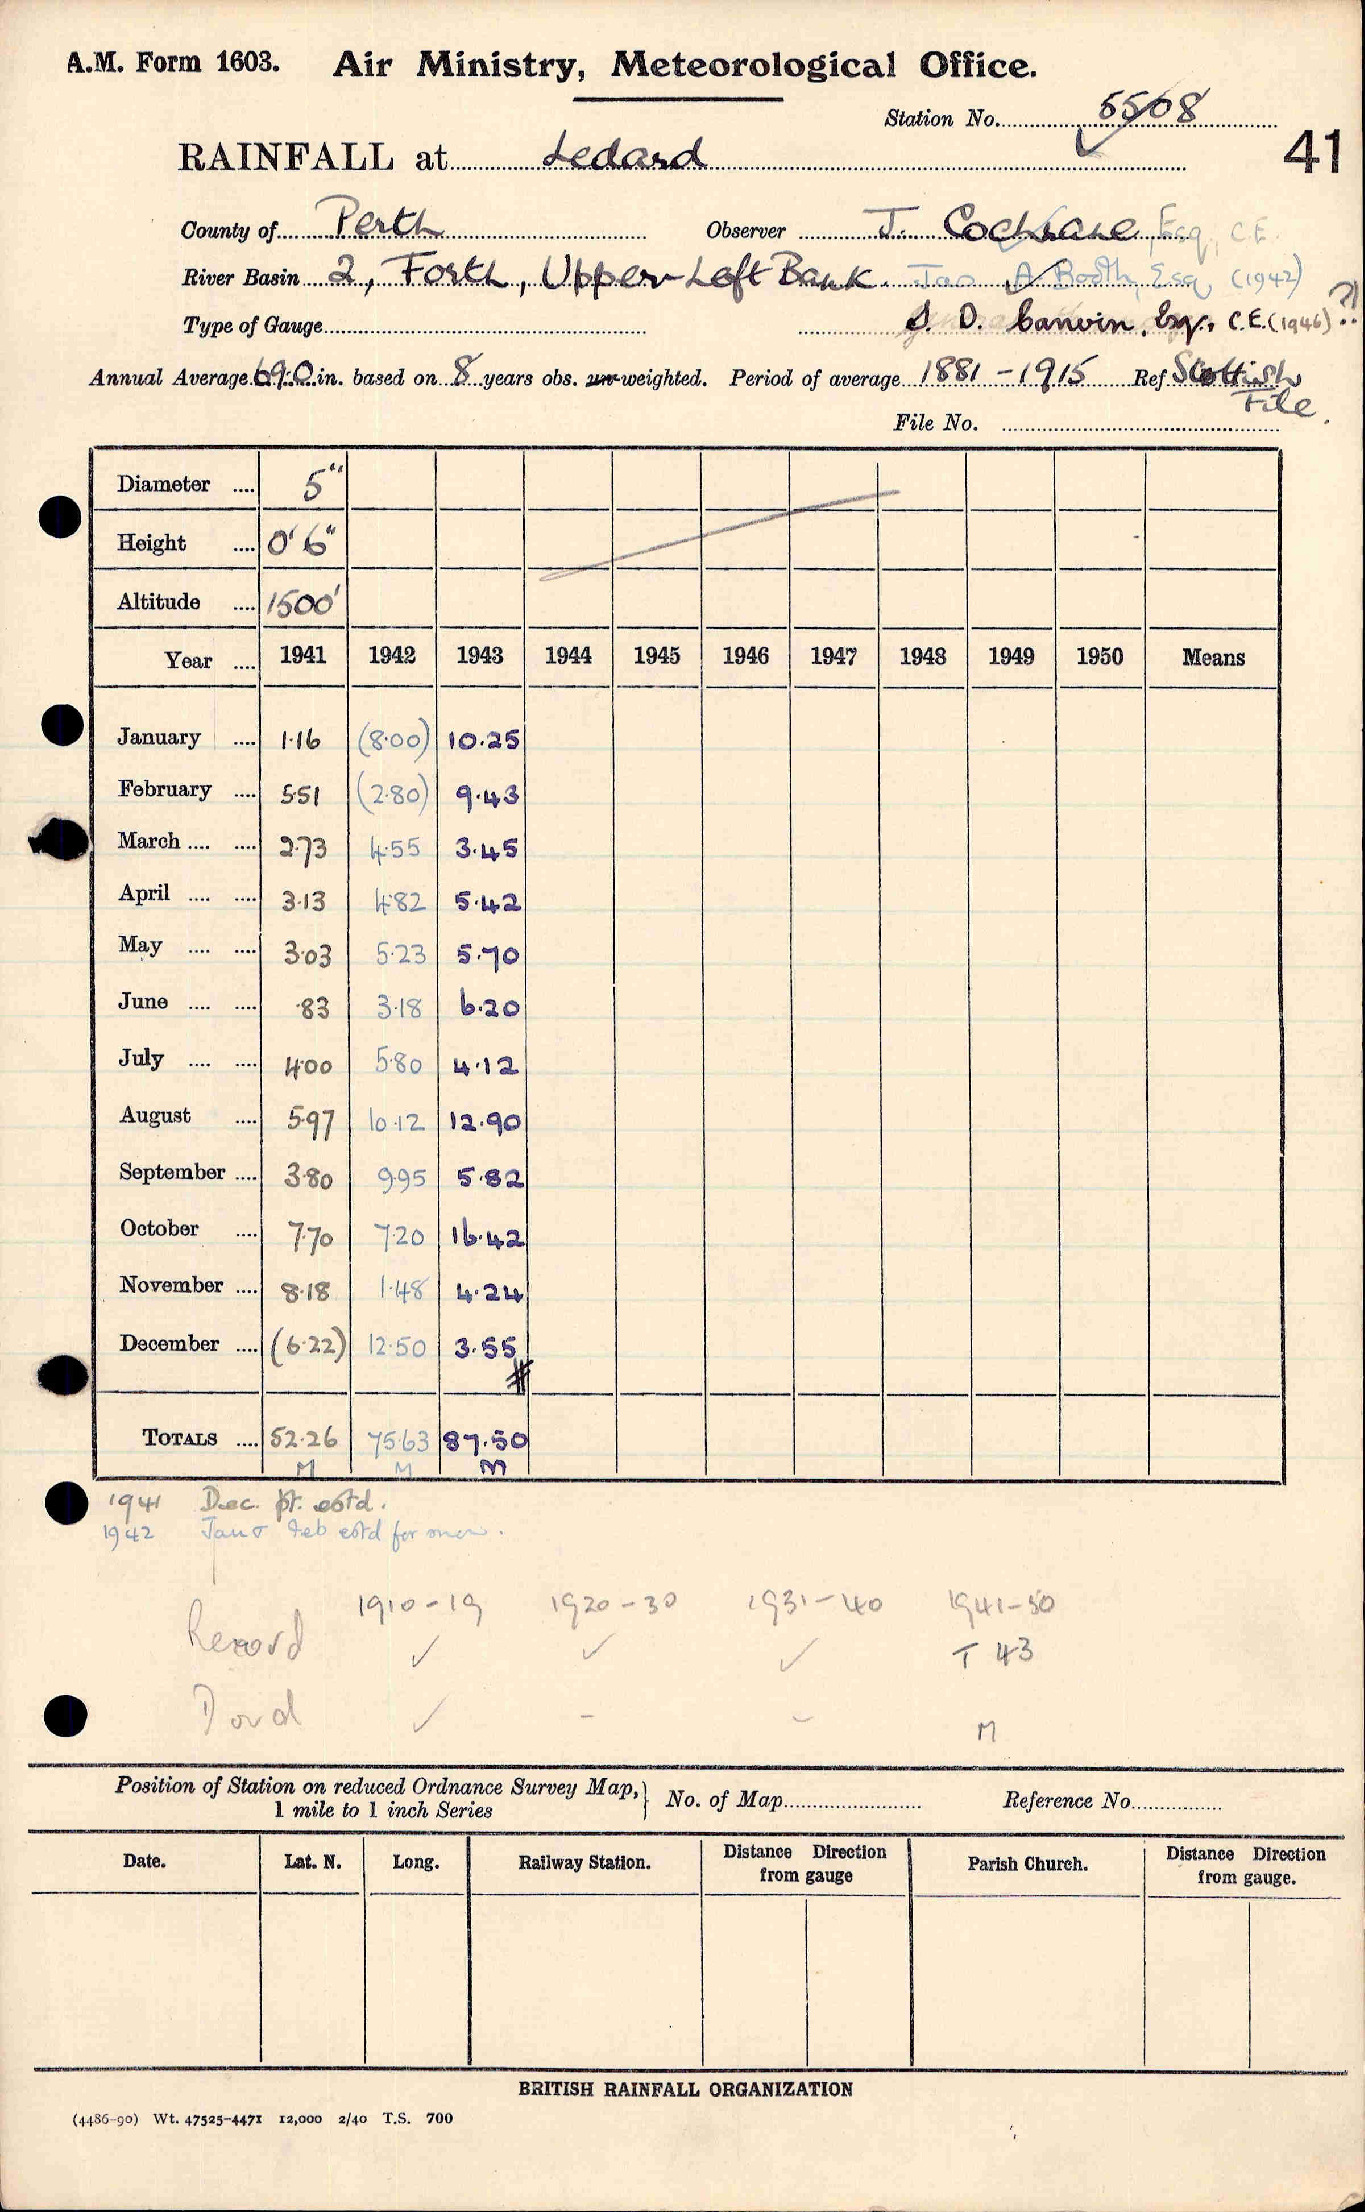 A.M. Form 1603. Air Ministry, Meteorological Office.
Station No. 5508
41
RAINFALL at Ledard
County of Perth Observer J. Cochrane, Esq., C.E.
River Basin 2, Forth, Upper-Left Bank. Jas A Booth, Esq (1942)
Type of Gauge S. D. Canvin, Esq., C.E. (1946) ?!
Annual Average 69.0 in. based on 8 years obs. un-weighted. Period of average 1881-1915 Ref Scottish File.
File No.
Diameter .... 5"
Height .... 0' 6"
Altitude .... 1500'
Year .... 1941 1942 1943 1944 1945 1946 1947 1948 1949 1950 Means
January .... 1.16 (8.00) 10.25
February .... 5.51 (2.80) 9.43
March .... .... 2.73 4.55 3.45
April .... .... 3.13 4.82 5.42
May .... .... 3.03 5.23 5.70
June .... .... .83 3.18 6.20
July .... .... 4.00 5.80 4.12
August .... 5.97 10.12 12.90
September .... 3.80 9.95 5.82
October .... 7.70 7.20 16.42
November .... 8.18 1.48 4.24
December .... (6.22) 12.50 3.55
#
TOTALS .... 52.26 75.63 87.50
M M M
1941 Dec. pt. estd.
1942 Jan & Feb estd for snow.
1910-19 1920-30 1931-40 1941-50
Record ✓ ✓ ✓ T 43
Dord ✓ - - M
Position of Station on reduced Ordnance Survey Map, } No. of Map Reference No.
1 mile to 1 inch Series
Date. Lat. N. Long. Railway Station. Distance Direction from gauge Parish Church. Distance Direction from gauge.
BRITISH RAINFALL ORGANIZATION
(4486-90) Wt. 47525-4471 12,000 2/40 T.S. 700